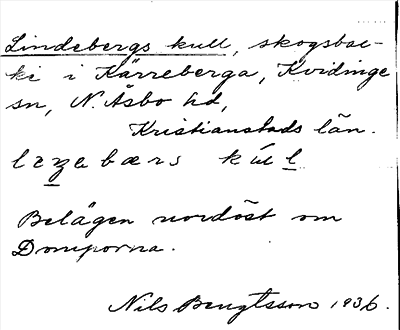 Lindebergs kull, skogsbac-
ke i Kärreberga, Kvidinge
sn, N. Åsbo hd,
Kristianstads län.
kul l
Belägen nordöst om
Domporna.
Nils Bengtsson 1936.